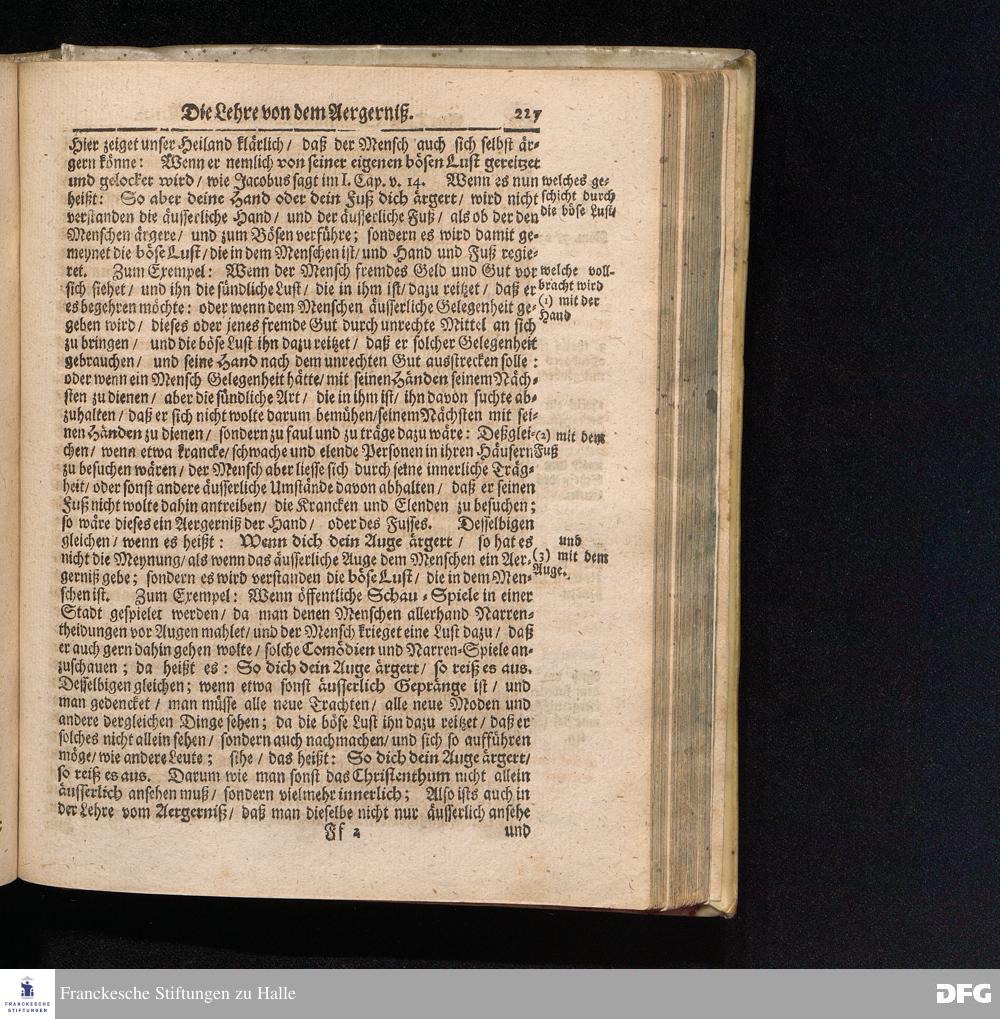 Die Lehre von dem Aergerniß. 227
Hier zeiget unser Heiland klärlich/ daß der Mensch auch sich selbst är-
gern könne: Wenn er nemlich von seiner eigenen bösen Lust gereitzet
und gelocket wird/ wie Jacobus sagt im I. Cap. v. 14. Wenn es nun
heißt: So aber deine Hand oder dein Fuß dich ärgert/ wird nicht
verstanden die äusserliche Hand/ und der äusserliche Fuß/ als ob der den
Menschen ärgere/ und zum Bösen verführe; sondern es wird damit ge-
meynet die böse Lust/ die in dem Menschen ist/ und Hand und Fuß regie-
ret. Zum Exempel: Wenn der Mensch fremdes Geld und Gut vor
sich siehet/ und ihn die sündliche Lust/ die in ihm ist/ dazu reitzet/ daß er
es begehren möchte: oder wenn dem Menschen äusserliche Gelegenheit ge-
geben wird/ dieses oder jenes fremde Gut durch unrechte Mittel an sich
zu bringen/ und die böse Lust ihn dazu reitzet/ daß er solcher Gelegenheit
gebrauchen/ und seine Hand nach dem unrechten Gut ausstrecken solle:
oder wenn ein Mensch Gelegenheit hätte/ mit seinen Händen seinem Näch-
sten zu dienen/ aber die sündliche Art/ die in ihm ist/ ihn davon suchte ab-
zuhalten/ daß er sich nicht wolte darum bemühen/ seinem Nächsten mit sei-
nen Händen zu dienen/ sondern zu faul und zu träge dazu wäre: Deßglei-
chen/ wenn etwa krancke/ schwache und elende Personen in ihren Häusern
zu besuchen wären/ der Mensch aber liesse sich durch seine innerliche Träg-
heit/ oder sonst andere äusserliche Umstände davon abhalten/ daß er seinen
Fuß nicht wolte dahin antreiben/ die Krancken und Elenden zu besuchen;
so wäre dieses ein Aergerniß der Hand/ oder des Fusses. Desselbigen
gleichen/ wenn es heißt: Wenn dich dein Auge ärgert/ so hat es
nicht die Meynung/ als wenn das äusserliche Auge dem Menschen ein Aer-
gerniß gebe; sondern es wird verstanden die böse Lust/ die in dem Men-
schen ist. Zum Exempel: Wenn öffentliche Schau-Spiele in einer
Stadt gespielet werden/ da man denen Menschen allerhand Narren-
theidungen vor Augen mahlet/ und der Mensch krieget eine Lust dazu/ daß
er auch gern dahin gehen wolte/ solche Comödien und Narren-Spiele an-
zuschauen; da heißt es: So dich dein Auge ärgert/ so reiß es aus.
Desselbigen gleichen; wenn etwa sonst äusserlich Gepränge ist/ und
man gedencket/ man müsse alle neue Trachten/ alle neue Moden und
andere dergleichen Dinge sehen; da die böse Lust ihn dazu reitzet/ daß er
solches nicht allein sehen/ sondern auch nachmachen/ und sich so aufführen
möge/ wie andere Leute; sihe/ das heißt: So dich dein Auge ärgert/
so reiß es aus. Darum wie man sonst das Christenthum nicht allein
äusserlich ansehen muß/ sondern vielmehr innerlich; Also ists auch in
der Lehre vom Aergerniß/ daß man dieselbe nicht nur äusserlich ansehe
Ff 2 und
welches ge-
schicht durch
die böse Lust/
welche voll-
bracht wird
(1) mit der
Hand
(2) mit dem
Fuß
und
(3) mit dem
Auge.
FRANCKESCHE
STIFTUNGEN
Franckesche Stiftungen zu Halle
DFG